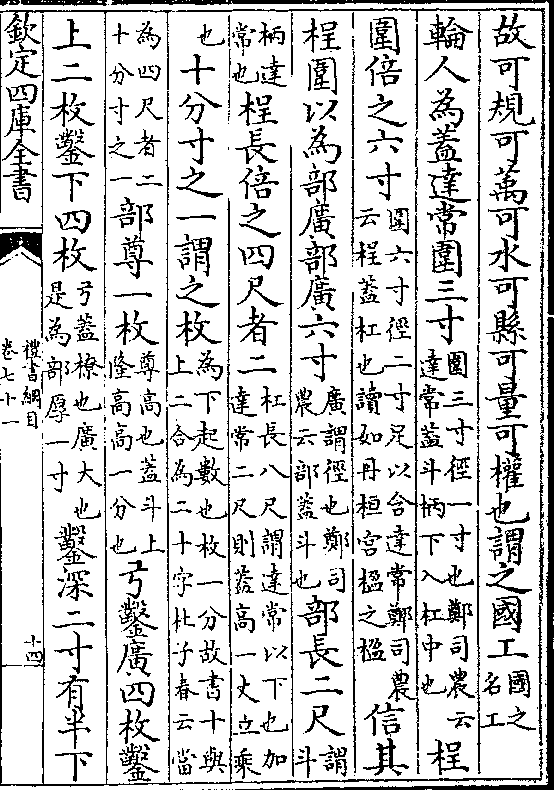 故可規可萬可水可縣可量可權也謂之國工國之名工
輪人為蓋達常圍三寸圍三寸徑一寸也鄭司農云達常蓋斗柄下入杠中也桯
圍倍之六寸圍六寸徑二寸足以含達常鄭司農云桯蓋杠也讀如丹桓宮楹之楹信其
桯圍以為部廣部廣六寸廣謂徑也鄭司農云部蓋斗也部長二尺謂斗
柄達常也桯長倍之四尺者二杠長八尺謂達常以下也加達常二尺則蓋高一丈立乘
也十分寸之一謂之枚為下起數也枚一分故書十與上二合為二十字杜子春云當
為四尺者二十分寸之一部尊一枚尊高也蓋斗上隆高高一分也弓鑿廣四枚鑿
上二枚鑿下四枚弓蓋橑也廣大也是為部厚一寸鑿深二寸有半下
欽定四庫全書
禮書綱目
卷七十一
十四